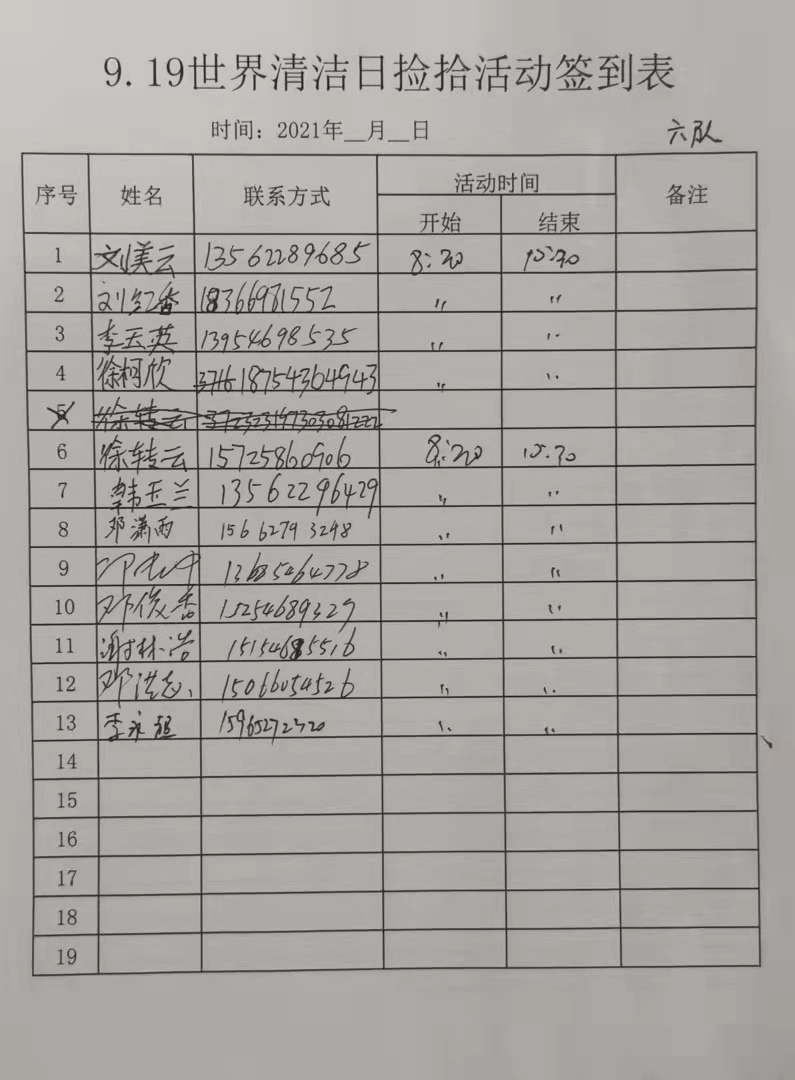 9.19世界清洁日捡拾活动签到表
时间：2021年__月__日
六队
序号 姓名 联系方式 活动时间 备注
开始 结束
1 刘美云 13562289685 8:20 10:30
2 刘红香 18366981552 〃 〃
3 李玉英 13954698535 〃 〃
4 徐柯欣 18754364943 〃 〃
5 徐转云
6 徐转云 15725860906 8:20 10:30
7 韩玉兰 13562296429 〃 〃
8 邓潇雨 156 6279 3248 〃 〃
9 〃 〃
10 邓俊香 15254689329 〃 〃
11 谢林浩 15154685516 〃 〃
12 邓洪志 15066054526 〃 〃
13 李永超 〃 〃
14
15
16
17
18
19